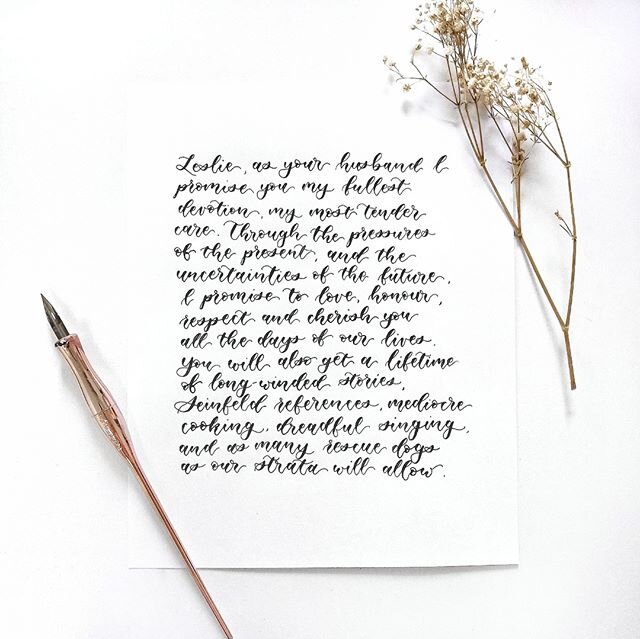 Leslie, as your husband I
promise you my fullest
devotion, my most tender
care. Through the pressures
of the present, and the
uncertainties of the future,
I promise to love, honour,
respect and cherish you
all the days of our lives.
You will also get a lifetime
of long winded stories,
Seinfeld references, mediocre
cooking, dreadful singing,
and as many rescue dogs
as our strata will allow.